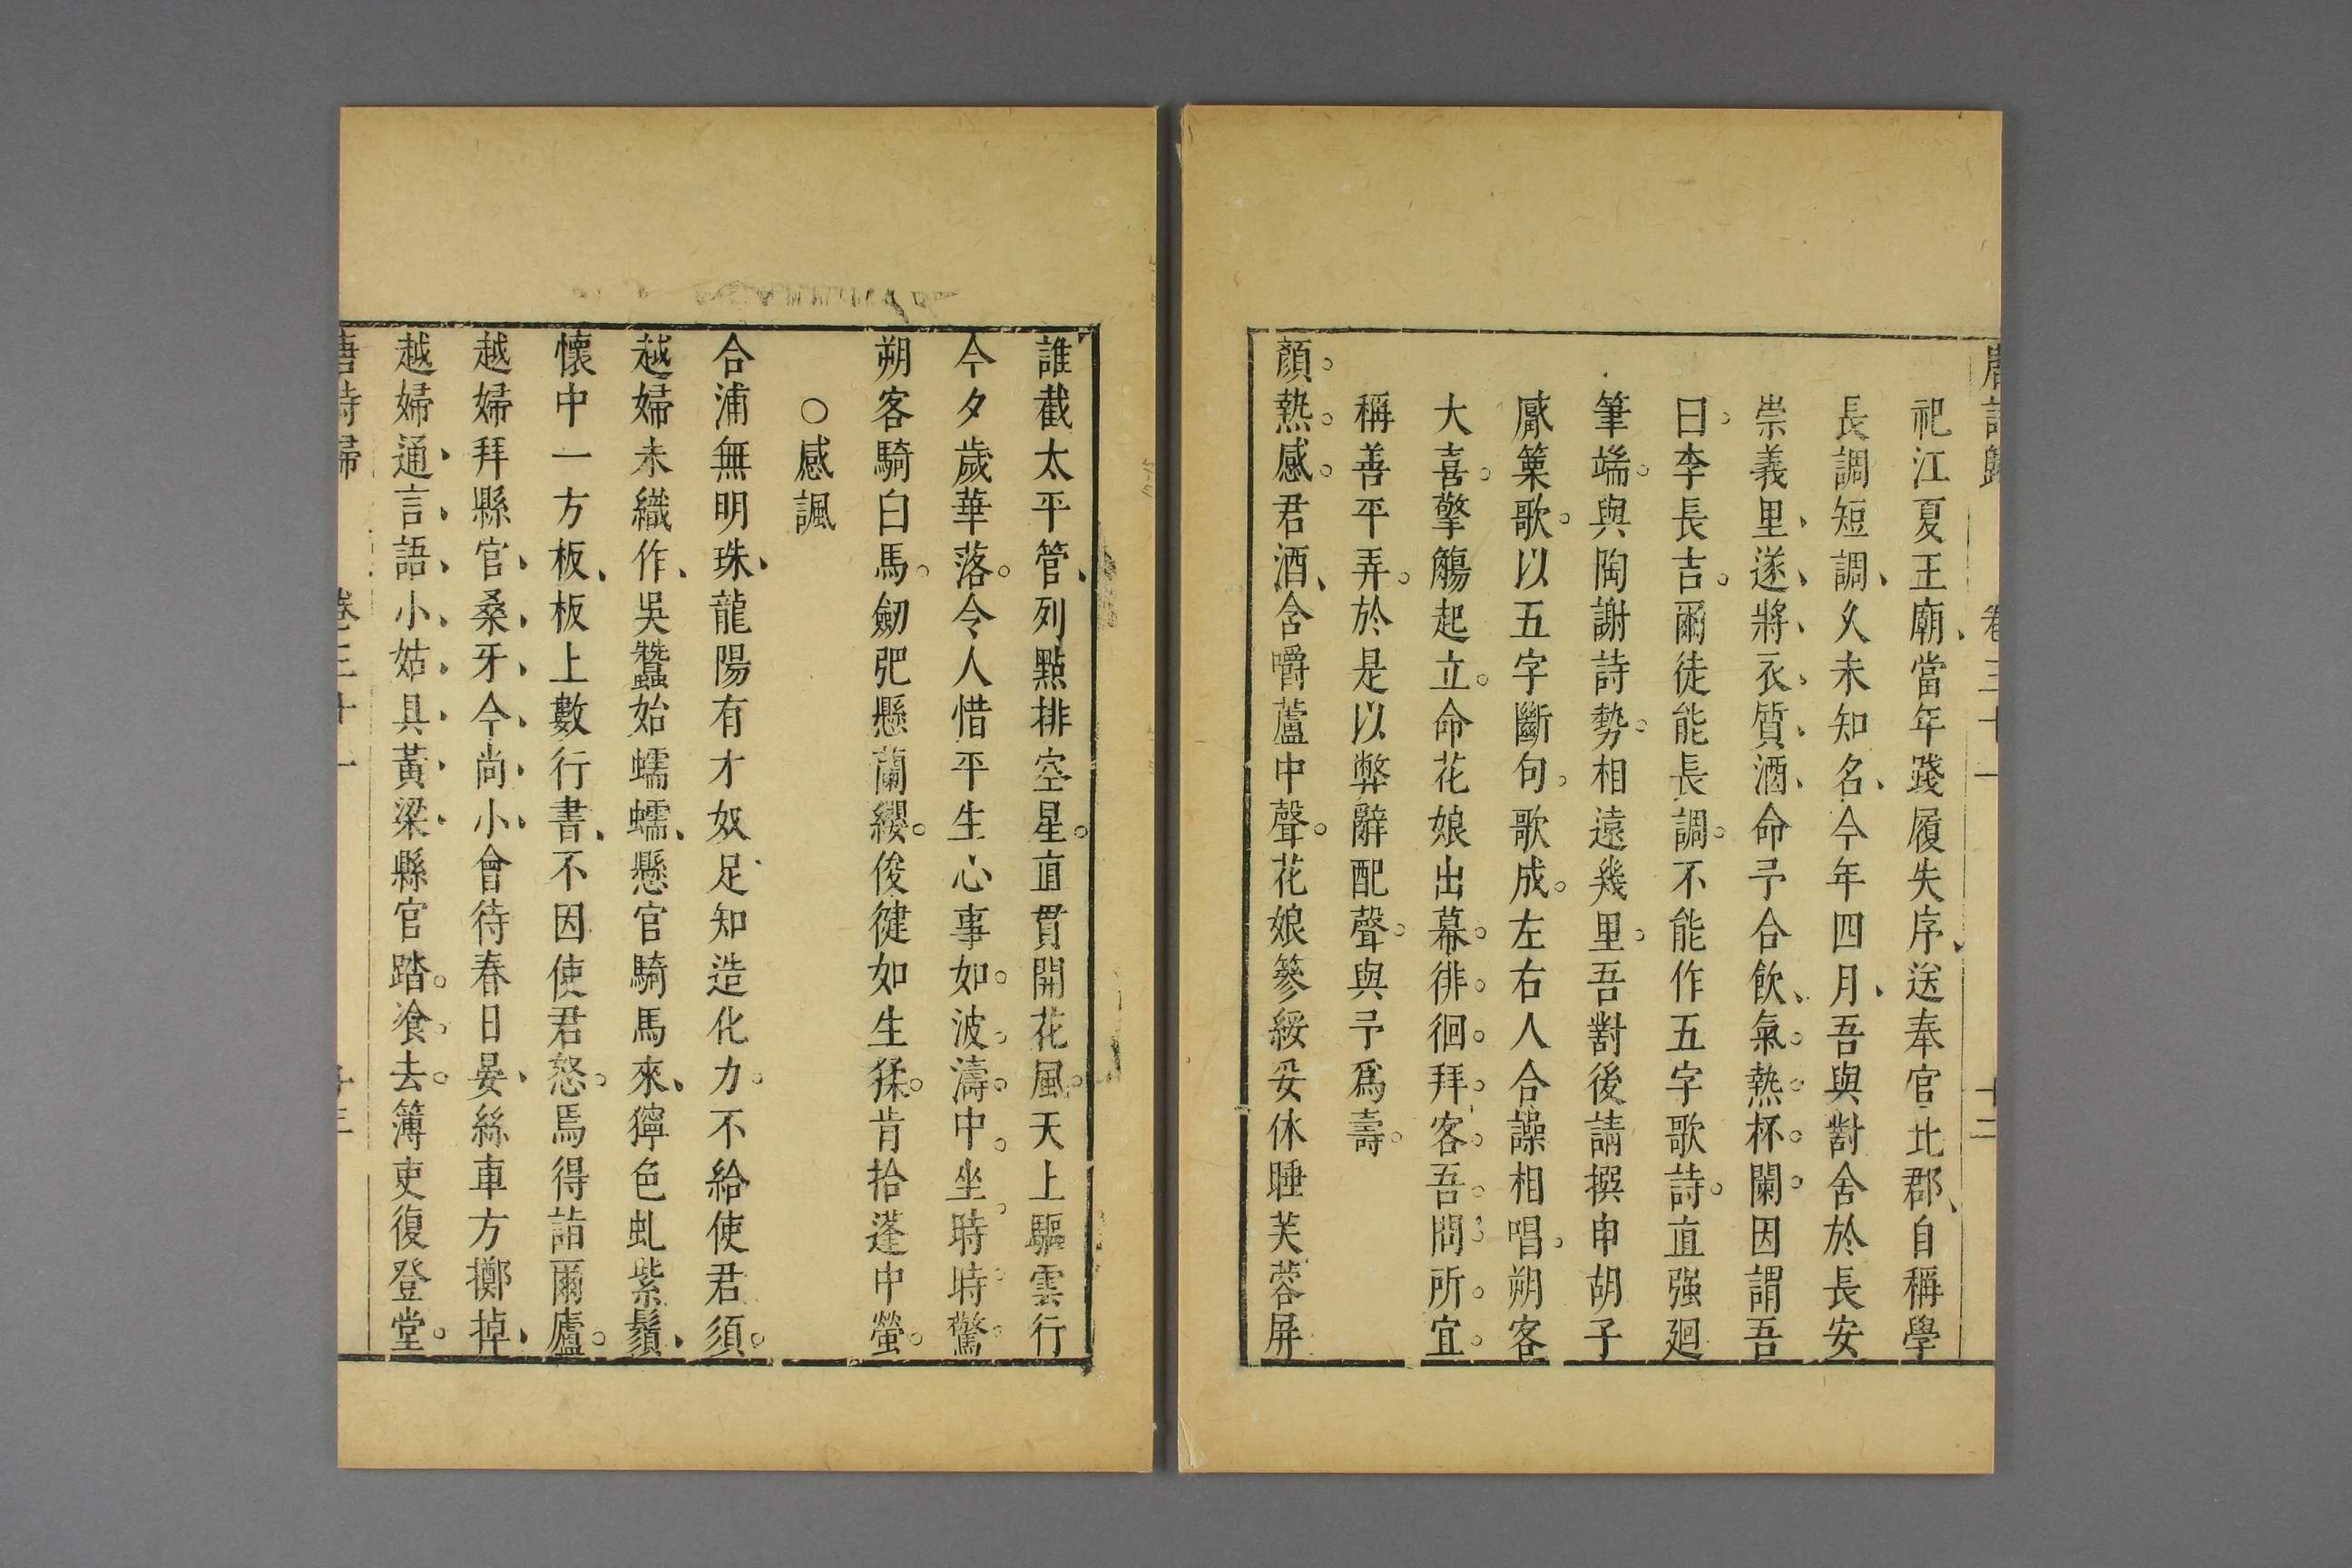 唐詩歸 卷三十一 十二
祀江夏王廟當年踐履失序送奉官北郡自稱學
長調短調久未知名今年四月吾與對舍於長安
崇義里遂將衣質酒命予合飲氣熱杯闌因謂吾
曰李長吉爾徒能長調不能作五字歌詩直强廻
筆端與陶謝詩勢相遠幾里吾對後請撰申胡子
觱篥歌以五字斷句歌成左右人合譟相唱朔客
大喜擎觴起立命花娘出幕徘徊拜客吾問所宜
稱善平弄於是以弊辭配聲與予爲壽
顏熱感君酒含嚼蘆中聲花娘篸綏妥休睡芙蓉屏
誰截太平管列點排空星直貫開花風天上驅雲行
今夕歲華落令人惜平生心事如波濤中坐時時驚
朔客騎白馬劒弝懸蘭纓俊徤如生猱肯拾蓬中螢
○感諷
合浦無明珠龍陽有才奴足知造化力不給使君須
越婦未織作吳蠶始蠕蠕懸官騎馬來獰色虬紫鬚
懷中一方板板上數行書不因使君怒焉得詣爾廬
越婦拜縣官桑牙今尚小會待春日晏絲車方擲掉
越婦通言語小姑具黃梁縣官踏飡去簿吏復登堂
唐詩歸 卷三十一 十三